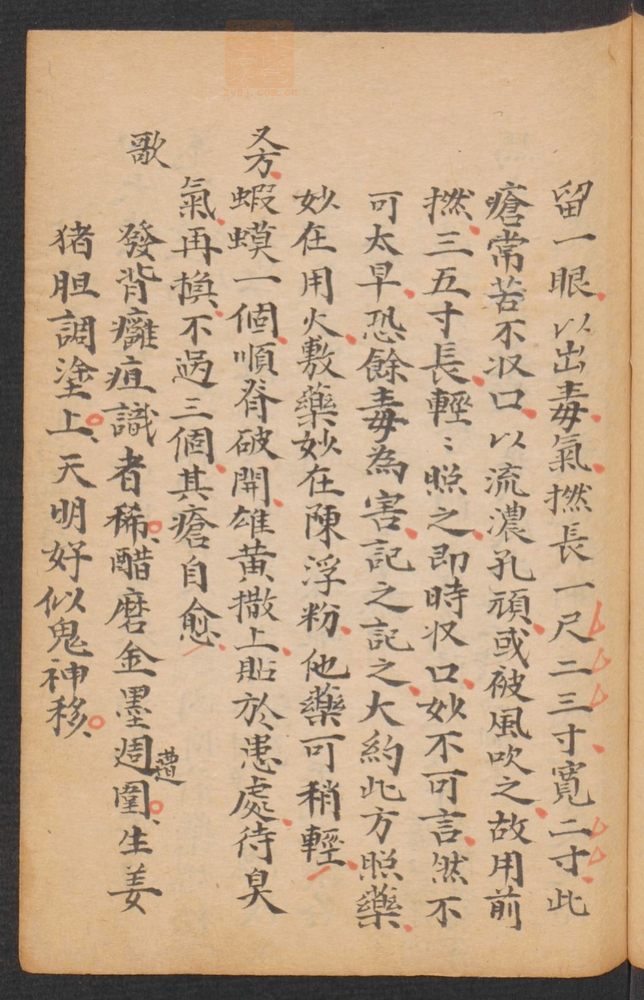 留一眼以出毒氣撚長一尺二三寸寬二寸此
瘡常若不收口以流濃孔頑或被風吹之故用前
撚三五寸長輕：照之即時收口妙不可言然不
可太早恐餘毒為害記之記之大約此方照藥
妙在用火敷藥妙在陳浮粉他藥可稍輕
又方蝦蟆一個順脊破開雄黃撒上貼於患處待臭
氣再換不過三個其瘡自愈
歌
發背癰疽識者稀醋磨金墨週遭圍生姜
猪胆調塗上天明好似鬼神移